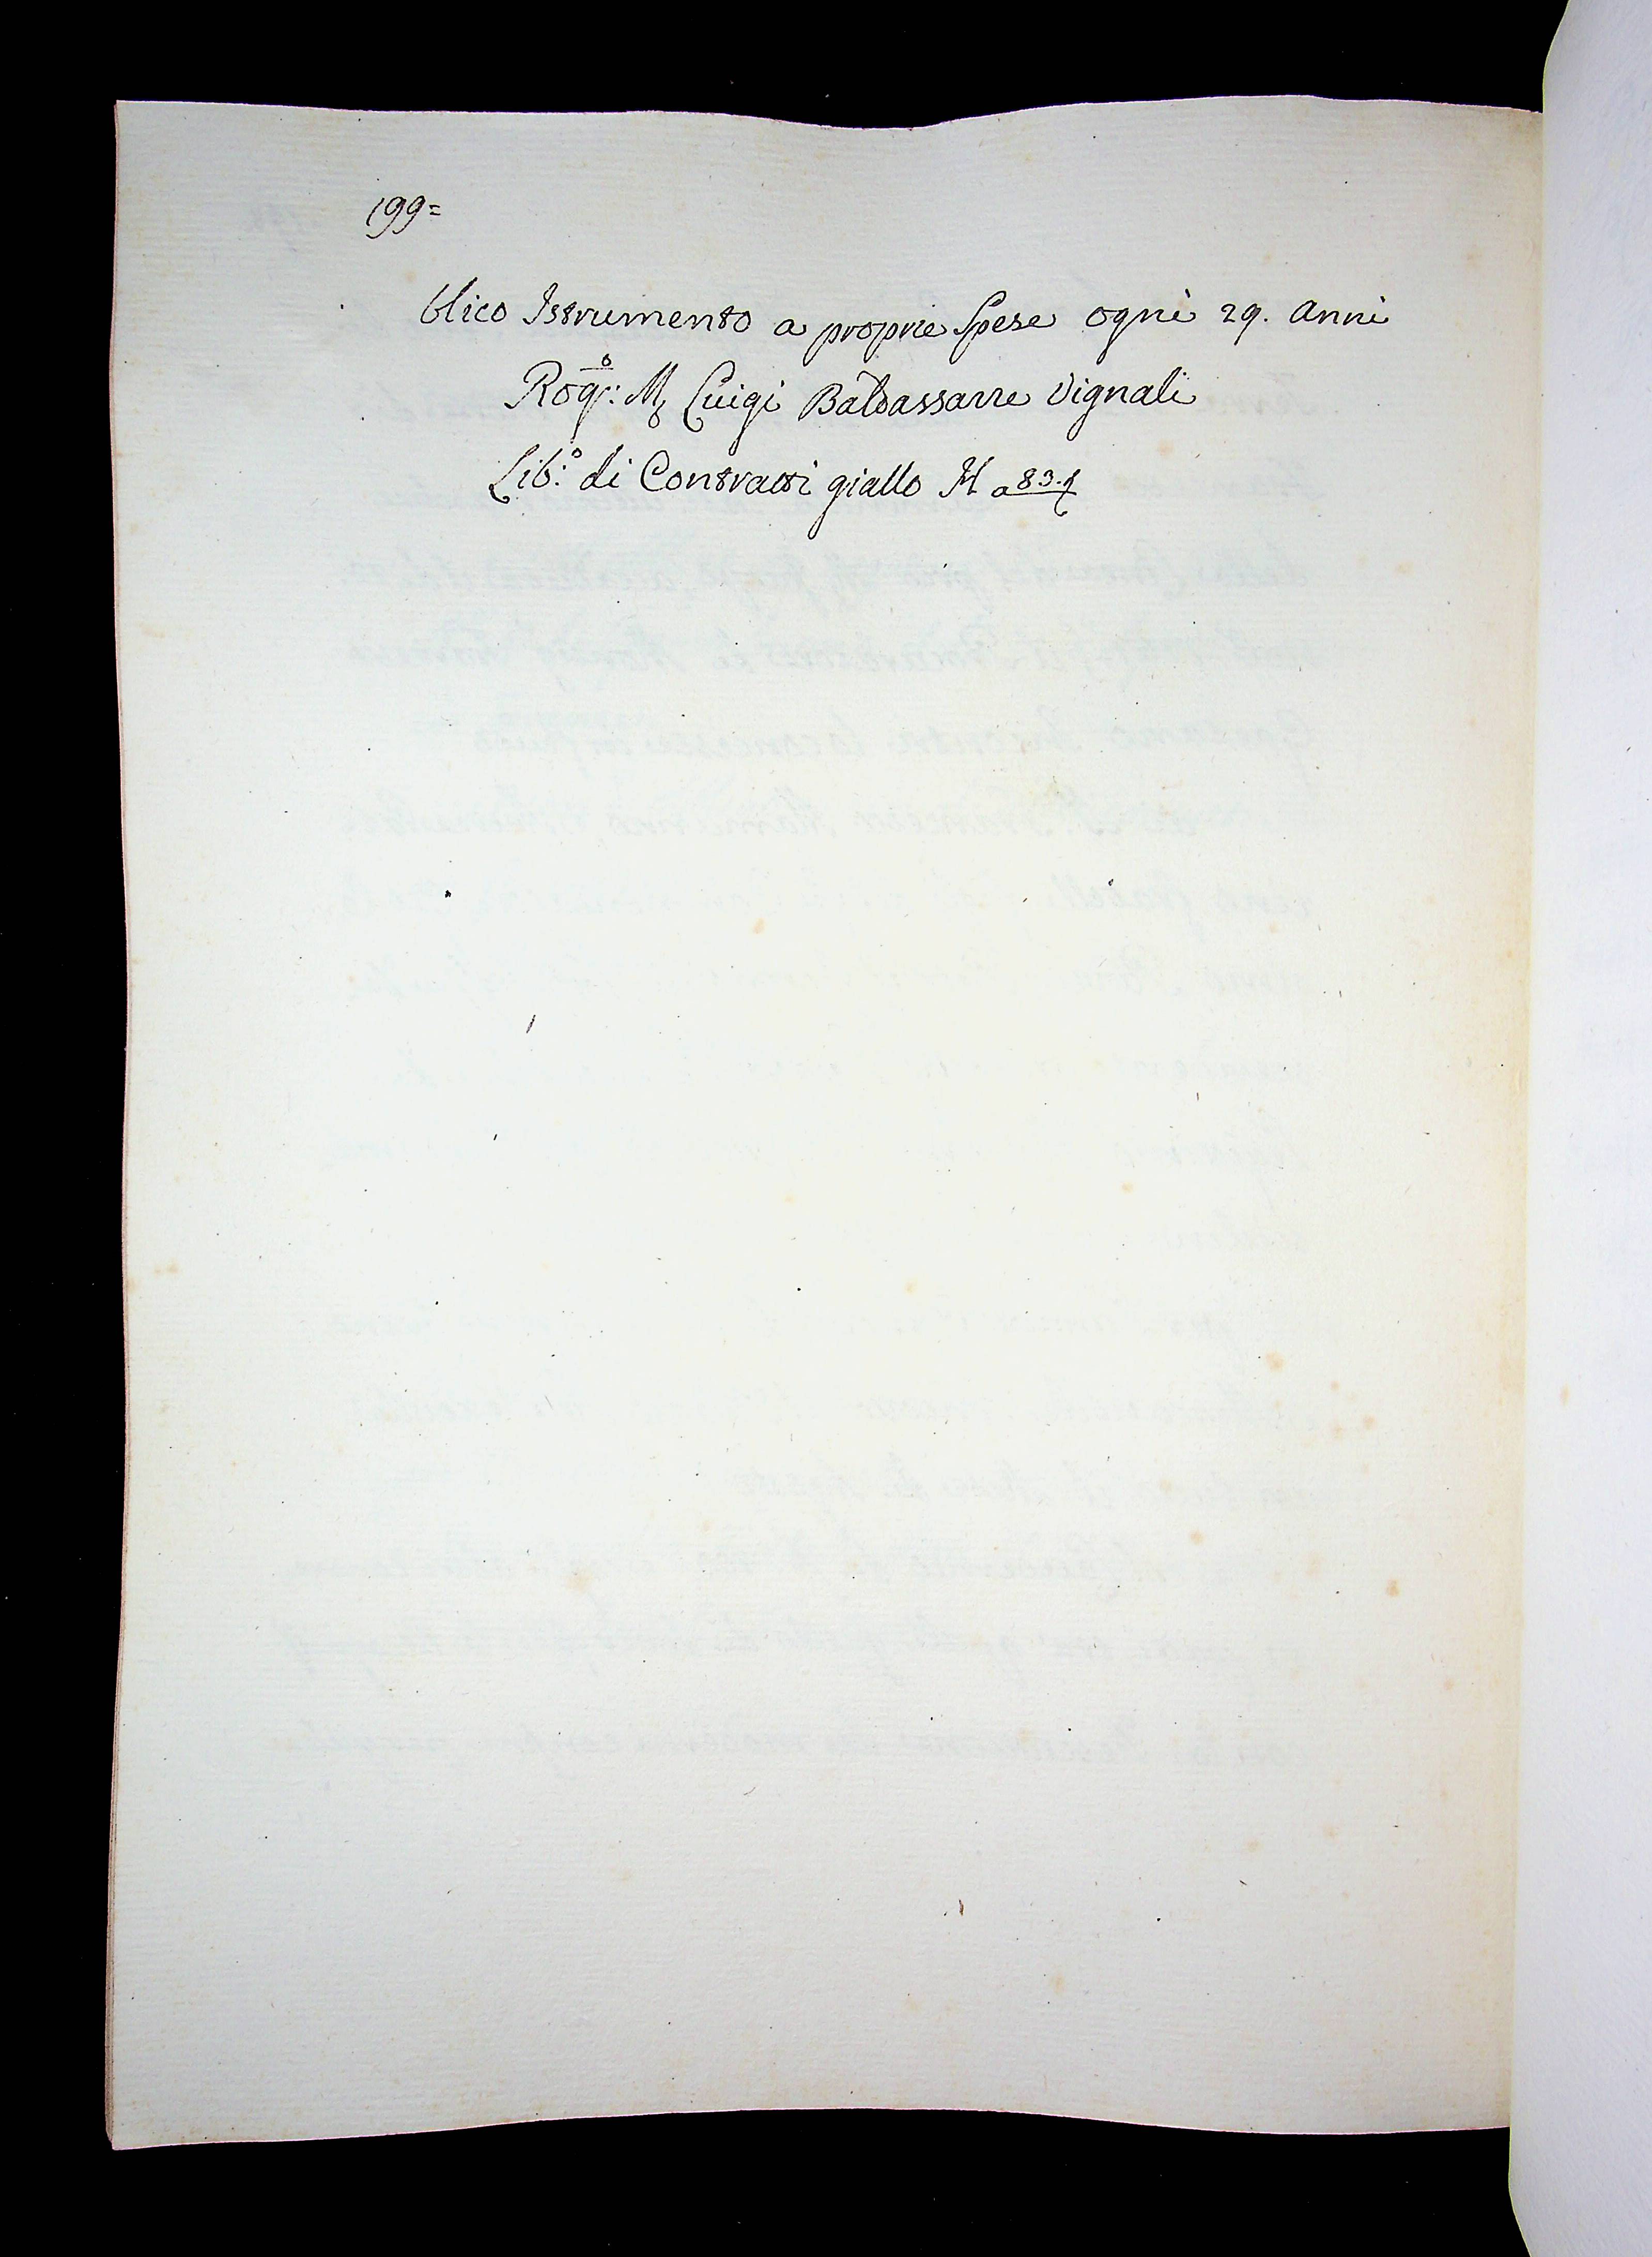 199=
blico Istrumento a proprie Spese ogni 29. anni
Rog:º M, Luigi Baldassarre Vignali
Lib:º di Contratti giallo H a 83.